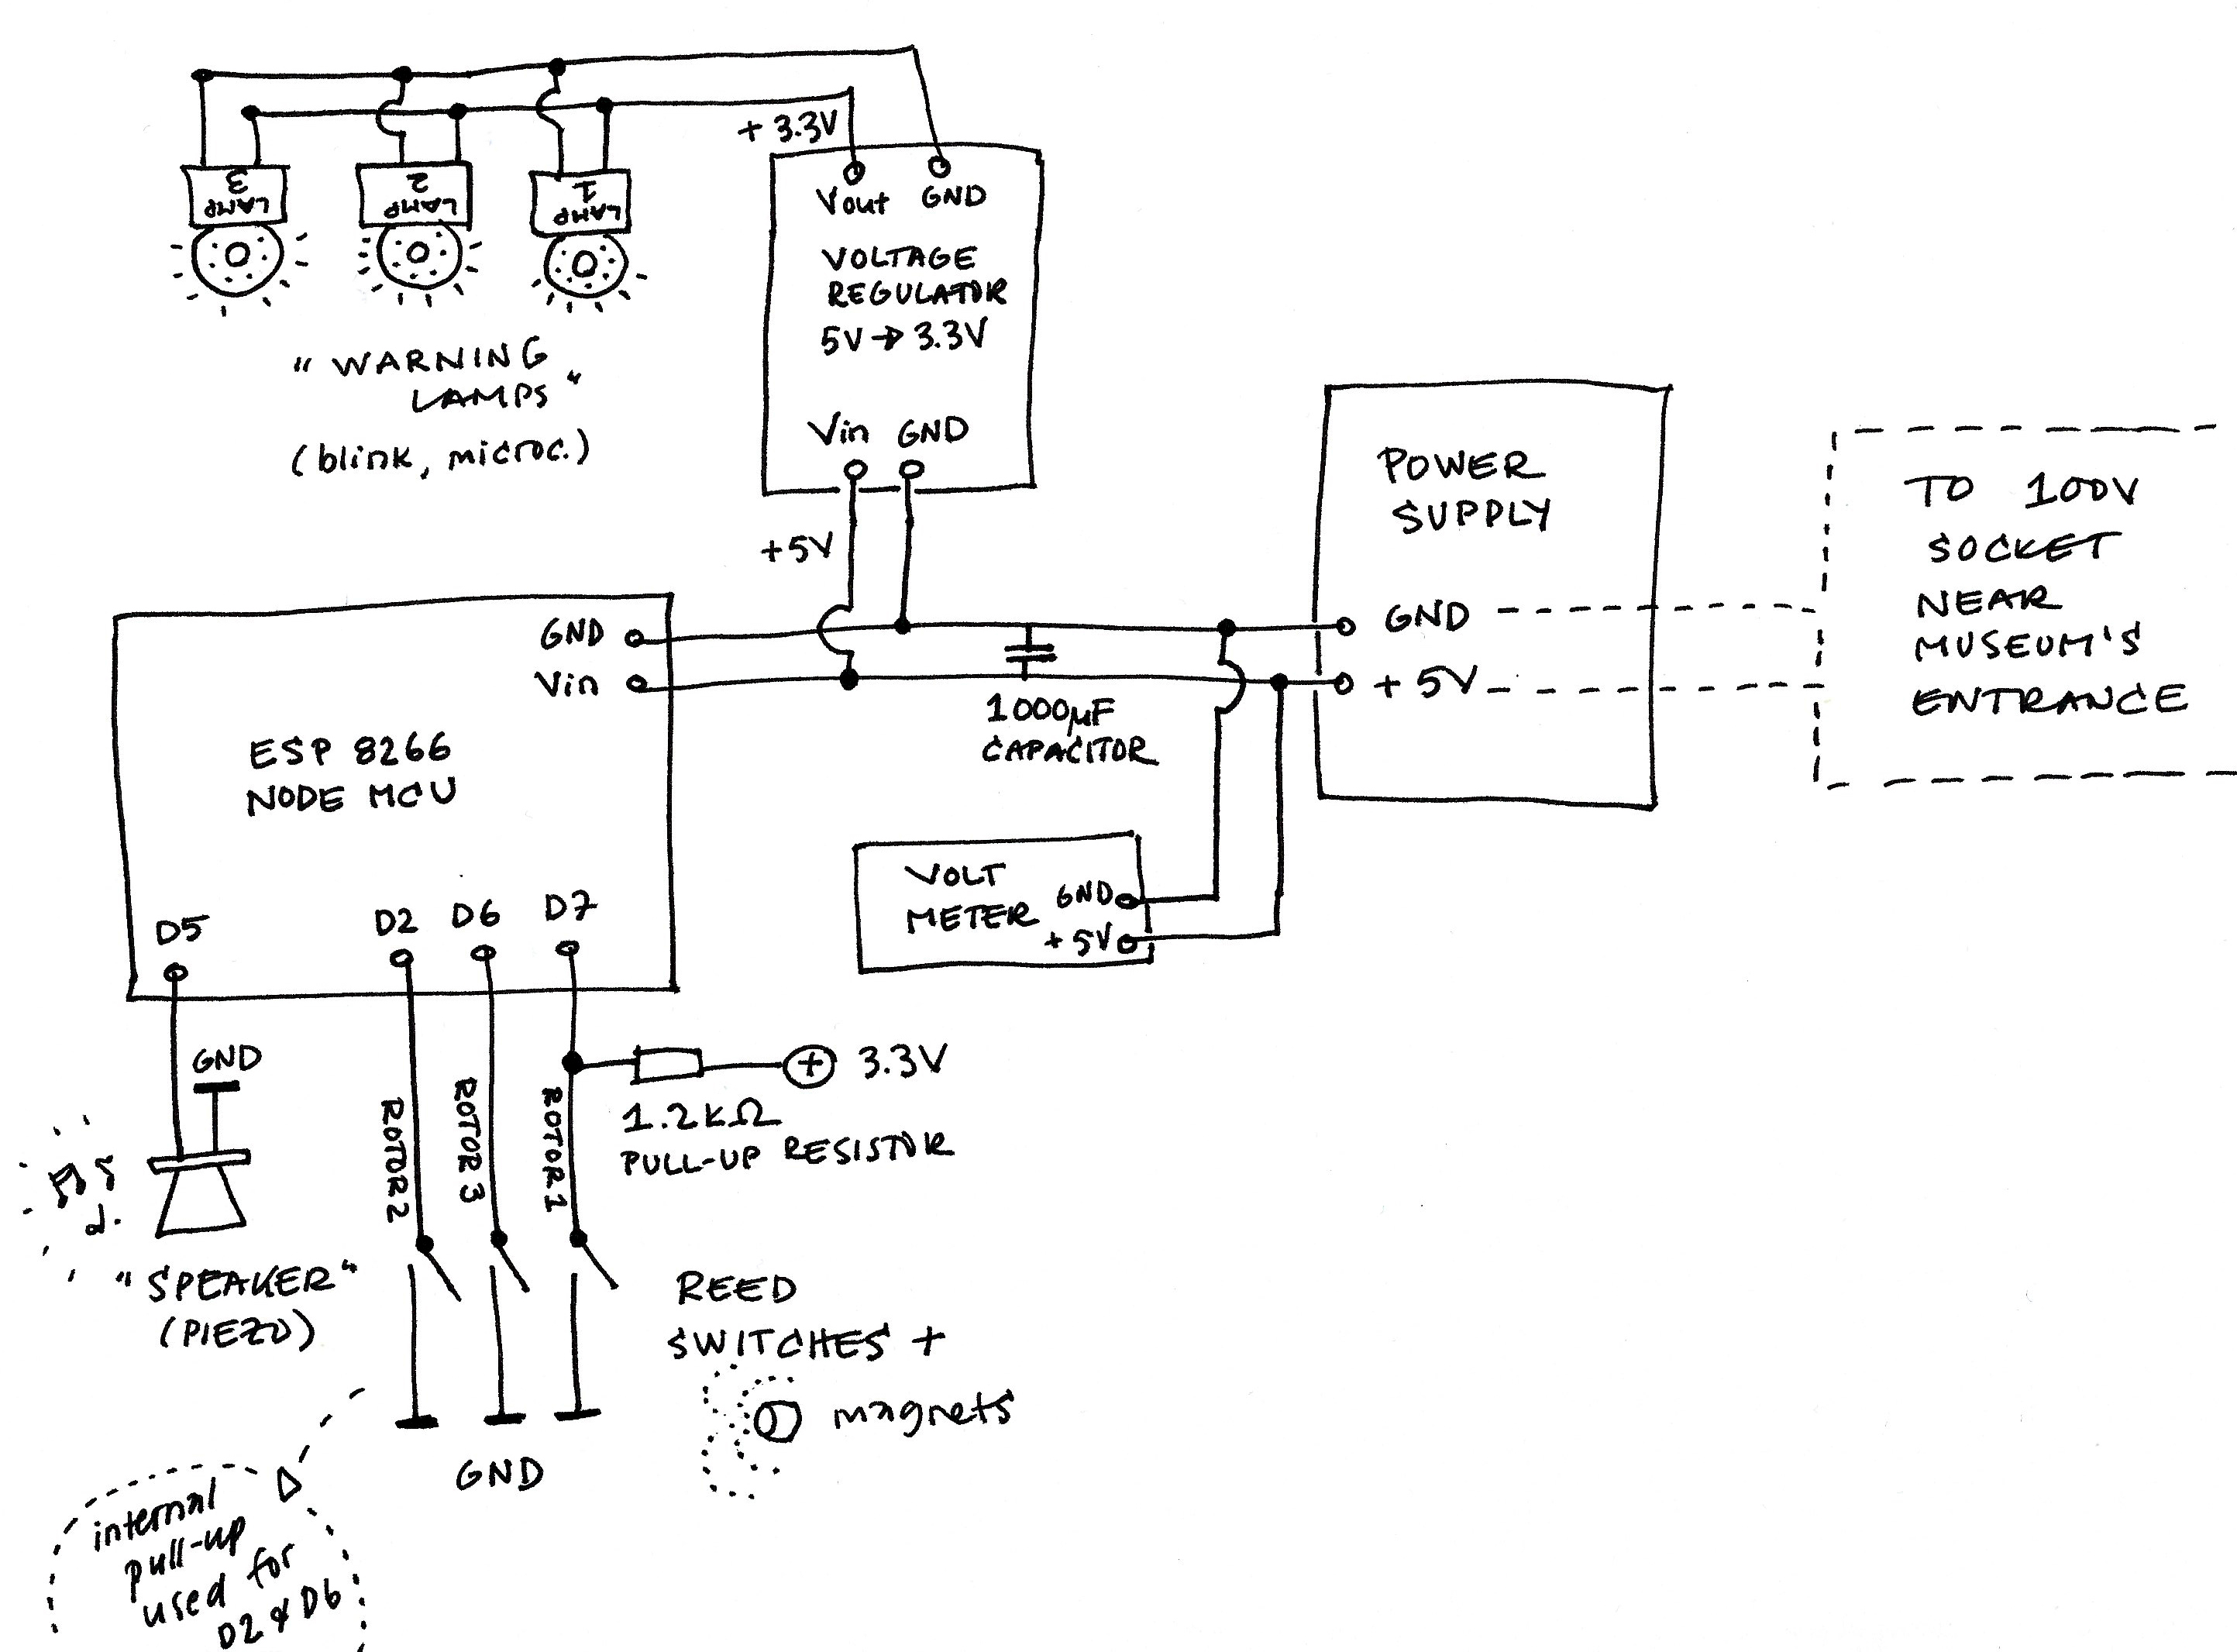 + 3.3V
Vout GND
VOLTAGE
REGULATOR
5V → 3.3V
Vin GND
+5V
LAMP
3
LAMP
2
LAMP
1
" WARNING
LAMPS "
(blink, microc.)
POWER
SUPPLY
GND
+ 5V
TO 100V
SOCKET
NEAR
MUSEUM'S
ENTRANCE
GND
Vin
ESP 8266
NODE MCU
D5
D2 D6 D7
1000µF
CAPACITOR
VOLT
METER
GND
+ 5V
GND
"SPEAKER"
(PIEZO)
ROTOR 2
ROTOR 3
ROTOR 1
+ 3.3V
1.2KΩ
PULL-UP RESISTOR
REED
SWITCHES +
magnets
GND
internal
pull-up
used for
D2 & D6